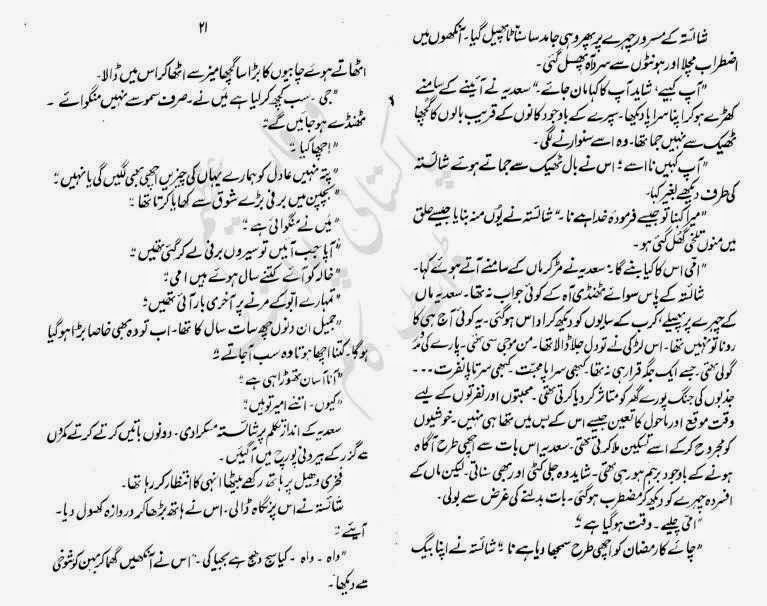 شائستہ کے مسرور چہرے پر پھر وہی جامد سا سناٹا پھیل گیا۔ آنکھوں میں
اضطراب مچلا اور ہونٹوں سے سرد آہ پھسل گئی۔
"آپ کہیے، شاید آپ کا کہا مان جائے۔" سعدیہ نے آئینے کے سامنے
کھڑے ہو کر اپنا سراپا دیکھا۔ سپرے کے باوجود کانوں کے قریب بالوں کا گچھا
ٹھیک سے نہیں جما تھا۔ وہ اسے سنوارنے لگی۔
"آپ کہیں نا اسے؛ اس نے بال ٹھیک سے جماتے ہوئے شائستہ
کی طرف دیکھے بغیر کہا۔
"میرا کہنا تو جیسے فرمودہ خدا ہے نا۔" شائستہ نے یوں منہ بنایا جیسے حلق
میں منوں تلخی گھل گئی ہو۔
"امی اس کا کیا بنے گا۔" سعدیہ نے مڑ کر ماں کے سامنے آتے ہوئے کہا۔
شائستہ کے پاس سوائے ٹھنڈی آہ کے کوئی جواب نہ تھا۔ سعدیہ ماں
کے چہرے پر پھیلے، کرب کے سایوں کو دیکھ کر اداس ہو گئی۔ یہ کوئی آج ہی کا
رونا تو نہیں تھا۔ اس لڑکی نے تو دل جلا ڈالا تھا۔ من موجی سی تھی۔ پارے کی
گولی تھی۔ جسے ایک جگہ قرار ہی نہ تھا۔ کبھی سراپا محبت کبھی سرتاپا نفرت ۔۔۔
جذبوں کی جنگ پورے گھر کو متاثر کر دیا کرتی تھی۔ محبتوں اور نفرتوں کے لیے
وقت موقع اور ماحول کا تعین جیسے اس کے بس میں تھا ہی نہیں۔ خوشیوں
کو مجروح کر کے اسے تسکین ملا کرتی تھی۔ سعدیہ اس بات سے اچھی طرح آگاہ
ہونے کے باوجود برہم ہو رہی تھی۔ شاید وہ جلی کٹی اور بھی سناتی۔ لیکن ماں کے
افسردہ چہرے کو دیکھ کر مضطرب ہو گئی۔ بات بدلنے کی غرض سے بولی۔
"امی چلیے۔ وقت ہو گیا ہے"
"چائے کا رمضان کو اچھی طرح سمجھا دیا ہے نا" شائستہ نے اپنا بیگ
۲۱
اٹھاتے ہوئے چابیوں کا بڑا سا گچھا میز سے اٹھا کر اس میں ڈالا۔
"جی۔ سب کچھ کر لیا ہے میں نے۔ صرف سموسے نہیں منگوائے۔
ٹھنڈے ہو جائیں گے"
"اچھا کیا"
"پتہ نہیں عادل کو ہمارے یہاں کی چیزیں اچھی بھی لگیں گی یا نہیں"
"بچپن میں برفی بڑے شوق سے کھایا کرتا تھا"
"میں نے منگوائی ہے"
"آپا جب آئیں تو سیروں برفی لے کر گئی تھیں"
"خالہ کو آئے کتنے سال ہوئے ہیں امی"
"تمہارے ابّو کے مرنے پر آخری بار آئی تھیں؛
"جمیل ان دنوں چھ سات سال کا تھا۔ اب تو وہ بھی خاصا بڑا ہو گیا
ہو گا۔ کتنا اچھا ہوتا وہ سب آ جاتے"
"آنا آسان تھوڑا ہی ہے"
"کیوں۔ اتنے امیر تو ہیں"
سعدیہ کے انداز تکلم پر شائستہ مسکرا دی۔ دونوں باتیں کرتے کرتے کمروں
سے گزر کے بیرونی پورچ میں آ گئیں۔
فخری وھیل پر ہاتھ رکھے بیٹھا انہی کا انتظار کر رہا تھا۔
شائستہ نے اس پر نگاہ ڈالی۔ اس نے ہاتھ بڑھا کر دروازہ کھول دیا۔
آیئے"
"واہ۔ واہ۔ کیا سج دھج ہے بجیا کی۔" اس نے آنکھیں گھما کر بہن کو شوخی
سے دیکھا۔